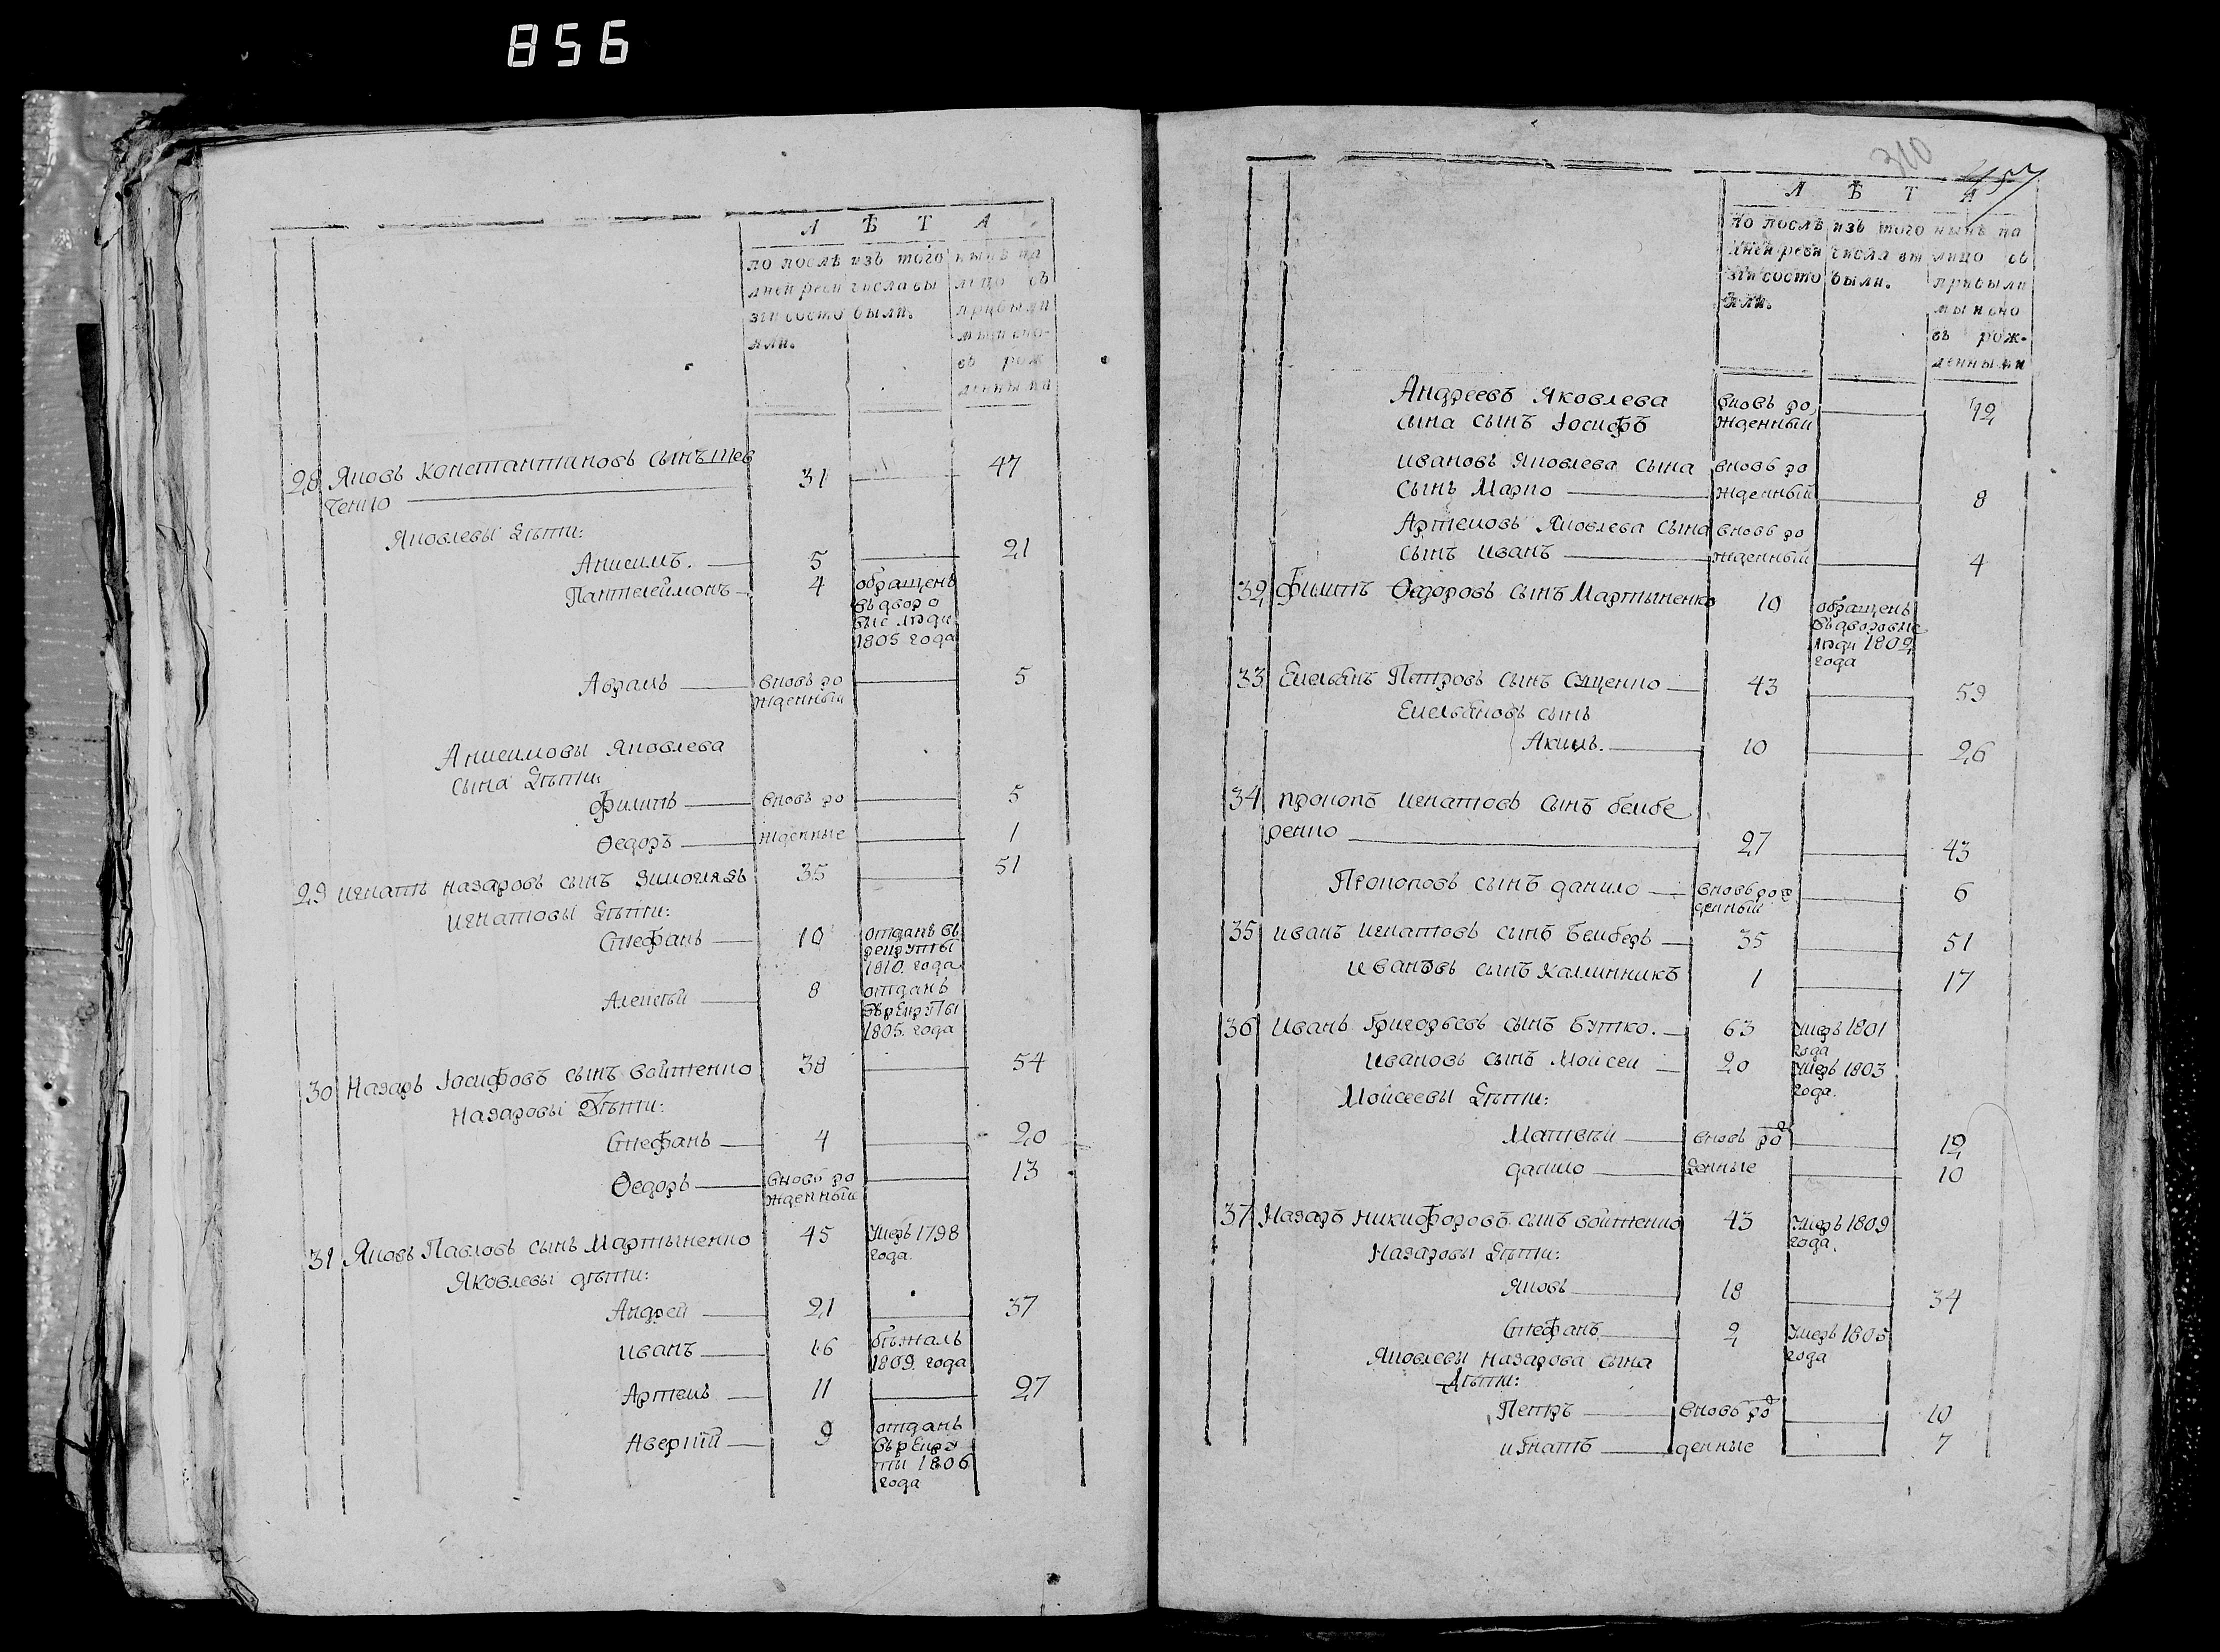 856
Л Ѣ Т А
по послѣ изъ того нынѣ на
дней реви числа вы лицо съ
зіи состо были. прибыли
яли. мы и сно
въ рож
денными
28 Яковъ Константиновъ сынъ Шев 31 47
ченко
Яковлевы дѣти:
Анисимъ. 5 21
Пантелеймонъ 4 обращенъ
въ дворо
вые люди
1805 года
Аврамъ вновь ро 5
жденный
Анисимовы Яковлева
сына дѣти:
Филипъ вновь ро 5
Ѳедоръ жденные 1
29 Игнатъ Назаровъ сынъ 35 51
Игнатовы дѣти:
Стефанъ 10 отданъ въ
рекруты
1810. года
Алексѣй 8 отданъ
въ рекруты
1805. года
30 Назаръ Іосифовъ сынъ Войтенко 38 54
Назаровы Дѣти:
Стефанъ 4 20
Ѳедоръ вновь ро 13
жденный
31 Яковъ Павловъ сынъ Мартыненко 45 умеръ 1798
года.
Яковлевы дѣти:
Андрей 21 37
Иванъ 16 бѣжалъ
1809. года
Артемъ 11 27
Аверкій 9 отданъ
въ рекру
ты 1806
года
310
457
Л Ѣ Т А
по послѣ изъ того нынѣ на
дней реви числа вы лицо съ
зіи состо были. прибыли
яли. мы и сно
въ рож-
денными
Андреевъ Яковлева вновь ро 12
сына сынъ Іосифъ жденный
Ивановъ Яковлева сына вновь ро
сынъ Марко жденный 8
Артемовъ Яковлева сына вновь ро
сынъ Иванъ жденный 4
32 Филипъ Ѳедоровъ сынъ Мартыненко 10 обращенъ
въ дворовые
люди 1802
года
33 Емельянъ Петровъ сынъ Сущенко 43 59
Емельяновъ сынъ
Акимъ. 10 26
34 Прокопъ Игнатовъ сынъ Бембе
ренко 27 43
Прокоповъ сынъ Данило вновь рож 6
денный
35 Иванъ Игнатовъ сынъ Бемберъ 35 51
Ивановъ сынъ Калинникъ 1 17
36 Иванъ Григорьевъ сынъ Бутко. 63 умеръ 1801
года
Ивановъ сынъ Мойсеи 20 умеръ 1803
года.
Мойсеевы дѣти:
Матвѣй вновь ро 12
Данило денные 10
37 Назаръ Никифоровъ сынъ Войтенко 43 умеръ 1809
года.
Назаровы дѣти:
Яковъ 18 34
Стефанъ 2 умеръ 1805
года
Яковлевы Назарова сына
Дѣти:
Петръ вновь ро 10
Игнатъ денные 7